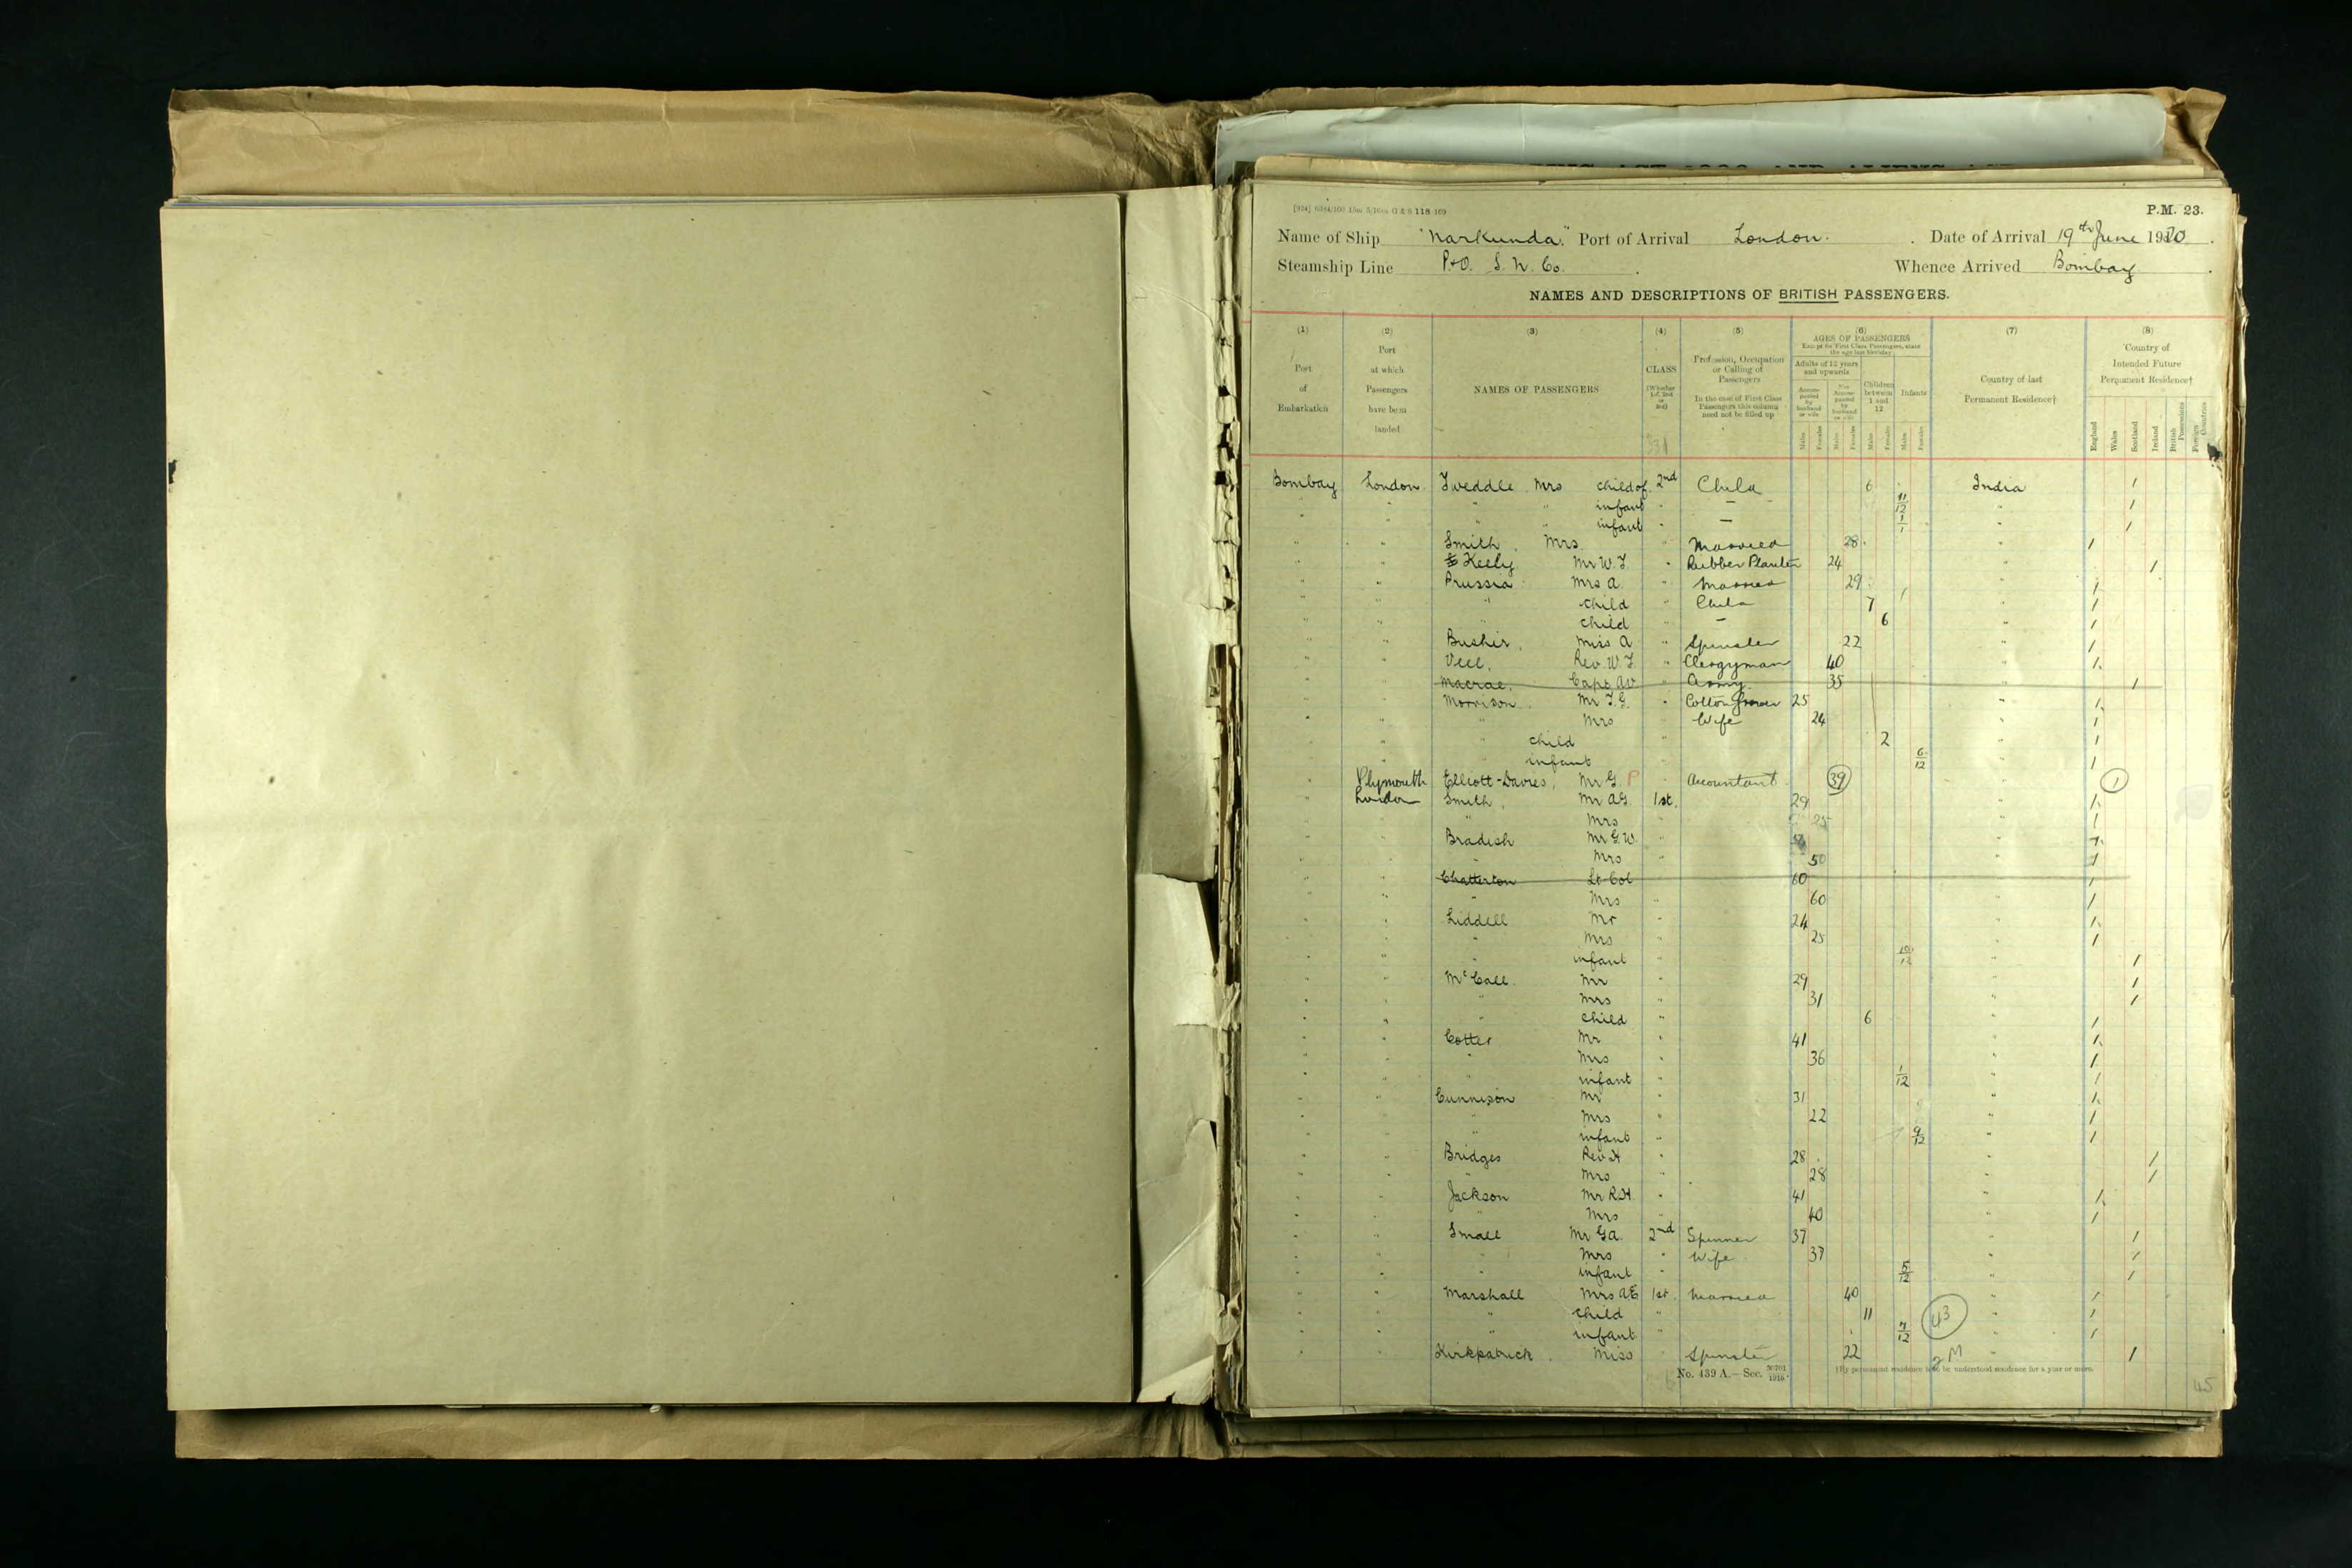 P.M. 23.
Name of Ship "Narkunda." Port of Arrival London. Date of Arrival 19th June 1920.
Steamship Line P&O. S. N. Co. Whence Arrived Bombay.
NAMES AND DESCRIPTIONS OF BRITISH PASSENGERS.
(1) (2) (3) (4) (5) (6) (7) (8)
Port of Embarkation
Port at which Passengers have been landed
NAMES OF PASSENGERS
CLASS (Whether 1st, 2nd or 3rd)
Profession, Occupation or Calling of Passengers
In the case of First Class Passengers this column need not be filled up
AGES OF PASSENGERS
Except for First Class Passengers, state the age last birthday
Adults of 12 years and upwards
Accompanied by husband or wife
Not Accompanied by husband or wife
Children between 1 and 12
Infants
Males Females Males Females Males Females Males Females
Country of last Permanent Residence†
Country of Intended Future Permanent Residence†
England Wales Scotland Ireland British Possessions Foreign Countries
Bombay London Tweddle Mrs child of 2nd Child 6 India 1
" " " " infant " – 11/12 " 1
" " " " infant " – 1/1 " 1
" " Smith, Mrs. " Married 28 " 1
" " Keely Mr W. T. " Rubber Planter 24 " 1
" " Prussia Mrs A. " Married 29 " 1
" " " child " Child 7 " 1
" " " child " – 6 " 1
" " Bushir, Miss A " Spinster 22 " 1
" " Veel, Rev. W. T. " Clergyman 40 " 1
" " Macrae, Capt AV " Army 35 " 1
" " Morrison Mr T. G. " Cotton Grower 25 " 1
" " " Mrs " Wife 24 " 1
" " " child " 2 " 1
" " " infant " 6/12 " 1
" Plymouth Ellicott-Davies, Mr G. P " Accountant 39 " 1
" London Smith, Mr AG. 1st. 29 " 1
" " " Mrs " 25 " 1
" " Bradish Mr G. W. " " 1
" " " Mrs " 50 " 1
" " Chatterton Lt Col " 60 " 1
" " " Mrs " 60 " 1
" " Liddell Mr " 24 " 1
" " " Mrs " 25 " 1
" " " infant " 10/12 " 1
" " McCall Mr " 29 " 1
" " " Mrs " 31 " 1
" " " child " 6 " 1
" " Cotter Mr " 41 " 1
" " " Mrs " 36 " 1
" " " infant " 1/12 " 1
" " Cunnison Mr " 31 " 1
" " " Mrs " 22 " 1
" " " infant " 9/12 " 1
" " Bridges Rev H " 28 " 1
" " " Mrs " 28 " 1
" " Jackson Mr R.H. " 41 " 1
" " " Mrs " 40 " 1
" " Small Mr G.A. 2nd Spinner 37 " 1
" " " Mrs " Wife 37 " 1
" " " infant " 5/12 " 1
" " Marshall Mrs A E 1st. Married 40 " 1
" " " child " 11 43 " 1
" " " infant " 7/12 " 1
" " Kirkpatrick Miss " Spinster 22 " 1
2 M
No. 439 A.—Sec.
†By permanent residence is to be understood residence for a year or more.
45